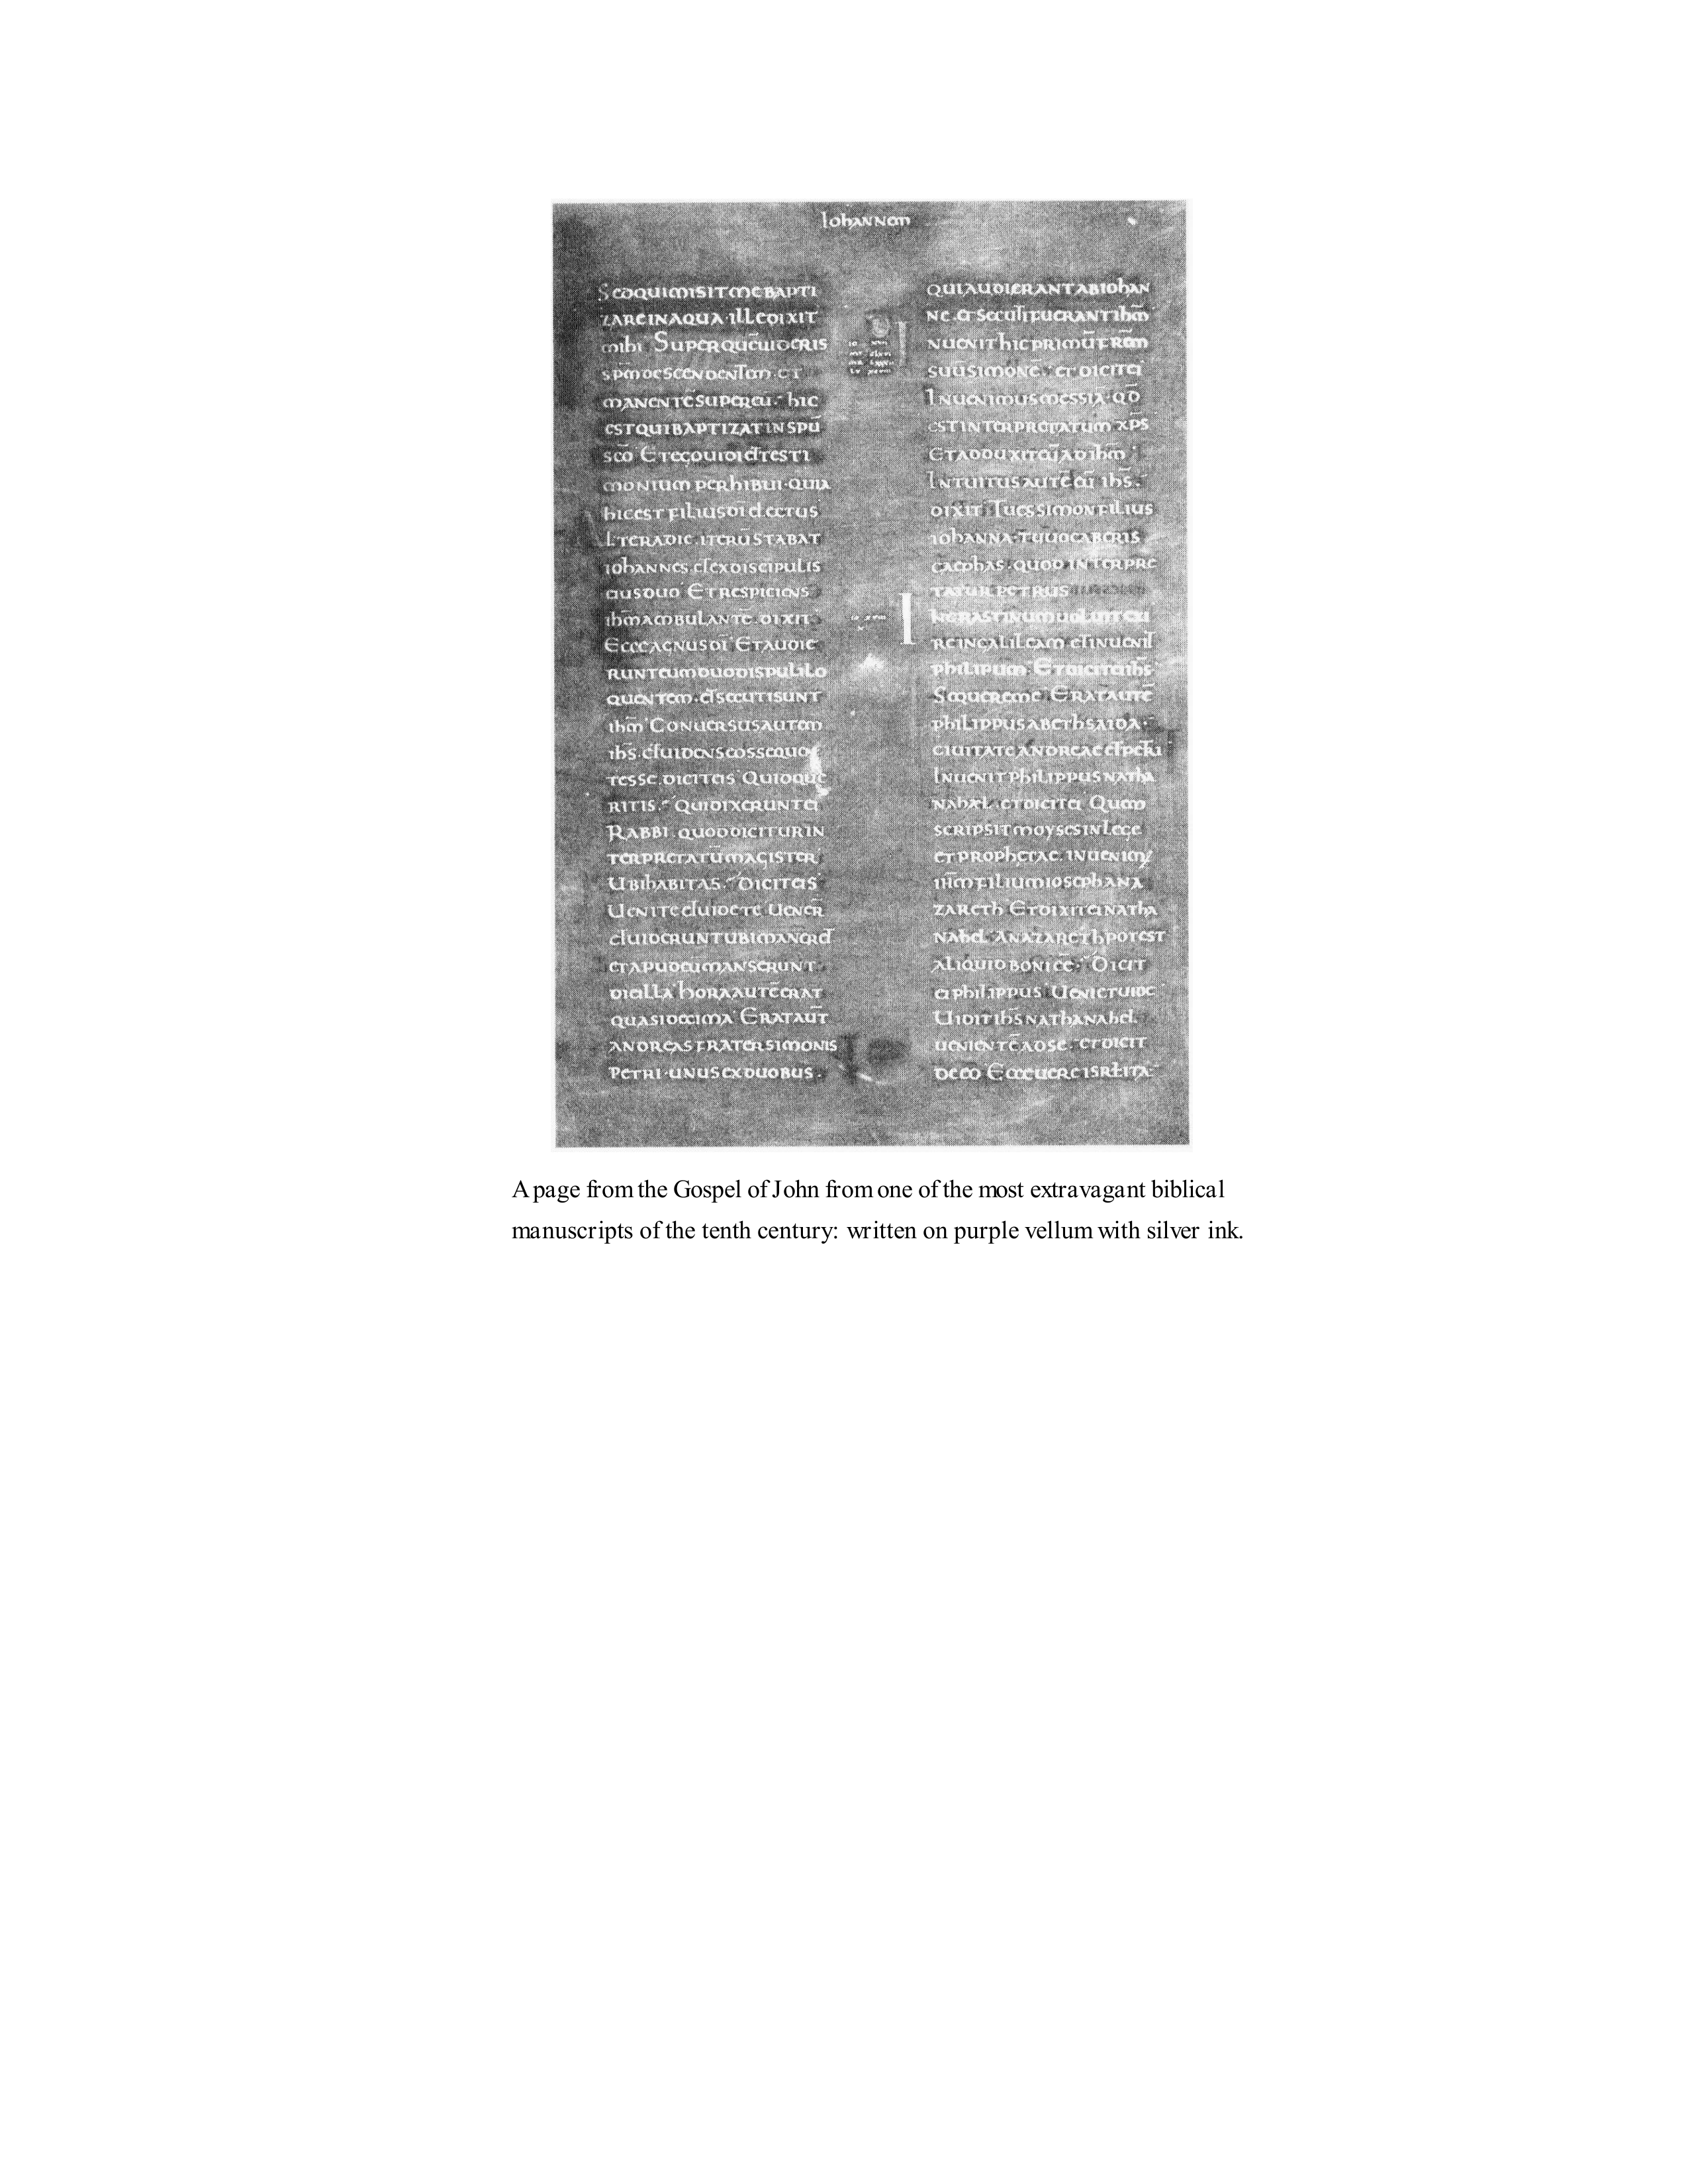 Iohannem
SEDQUIMISITMEBAPTI
ZAREINAQUA·ILLEDIXIT
mihi SUPERQUEˉUIDERIS
SPM̄DESCENDENTEM·ET
MANENTĒSUPEREŪ· hIC
ESTQUIBAPTIZATINSPŪ
SCŌ ETEGOUIDIETTESTI
MONIUM PERHIBUI·QUIA
hICEST FILIUSDĪELECTUS
ALTERADIE·ITERŪSTABAT
IOhANNES·ETEXDISCIPULIS
EIUSDUO ETRESPICIENS
IhM̄AMBULANTĒ·DIXIT
ECCEAGNUSDĪ ETAUDIE
RUNTEUMDUODISPULILO
QUENTEM·ETSECUTISUNT
IhM̄ CONUERSUSAUTEM
IhS̄·ETUIDENSEOSSEQUEN
TESSE·DICITEIS QUIDQUE
RITIS· QUIDIXERUNTEI
RABBI·QUODDICITURIN
TERPRETATŪMAGISTER
UBIhABITAS· DICITEIS
UENITEETUIDETE UENER̄
ETUIDERUNTUBIMANERET
ETAPUDEŪMANSERUNT
DIEILLA hORAAUTĒERAT
QUASIDECIMA ERATAUT̄
ANDREASFRATERSIMONIS
PETRI·UNUSEXDUOBUS·
QUIAUDIERANTABIOhAN
NE·ETSECUTIFUERANTIhM̄
INUENIThICPRIMŪFRĀM
SUŪSIMONĒ· ETDICITEI
INUENIMUSMESSIĀ·QD̄
ESTINTERPRETATUM XPS̄
ETADDUXITEŪADIhM̄
INTUITUSAUTĒEŪ IhS̄·
DIXIT TUESSIMONFILIUS
IOhANNA·TUUOCABERIS
CAEPhAS·QUOD INTERPRE
TATUR PETRUS
INCRASTINUMUOLUITEXI
REINGALILEAM ETINUENIT
PhILIPUM ETDICITEIIhS̄
SEQUEREME ERATAUTĒ
PhILIPPUSABEThSAIDA·
CIUITATEANDREAEETPETRI
INUENITPhILIPPUSNATHA
NAhEL·ETDICITEI QUEM
SCRIPSITMOYSESINLEGE
ETPROPhETAE·INUENIM
IHM̄FILIUMIOSEPhANA
ZARETh ETDIXITEINATHA
NAhEL·ANAZARETHPOTEST
ALIQUIDBONIEĒ· DICIT
EIPhILIPPUS UENIETUIDE
UIDITIhS̄NATHANAhEL
UENIENTĒADSE·ETDICIT
DEEO ECCEUEREISRŁITA
A page from the Gospel of John from one of the most extravagant biblical
manuscripts of the tenth century: written on purple vellum with silver ink.